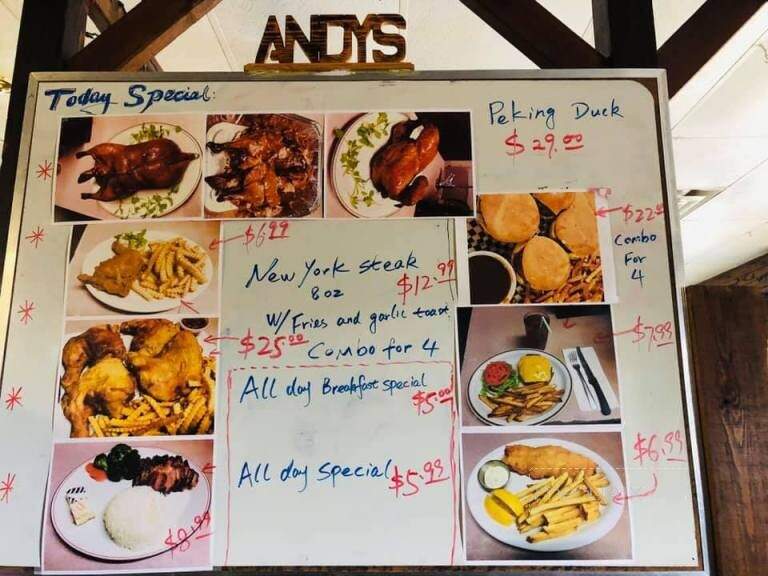 ANDYS
Today Special:
Peking Duck
$29.00
$6.99
$22.00
Combo
For
4
New York steak
8 oz
$12.99
W/ Fries and garlic toast.
$25.00
Combo for 4
$7.99
All day Breakfast special
$5.00
All day special $5.99
$6.99
$8.99